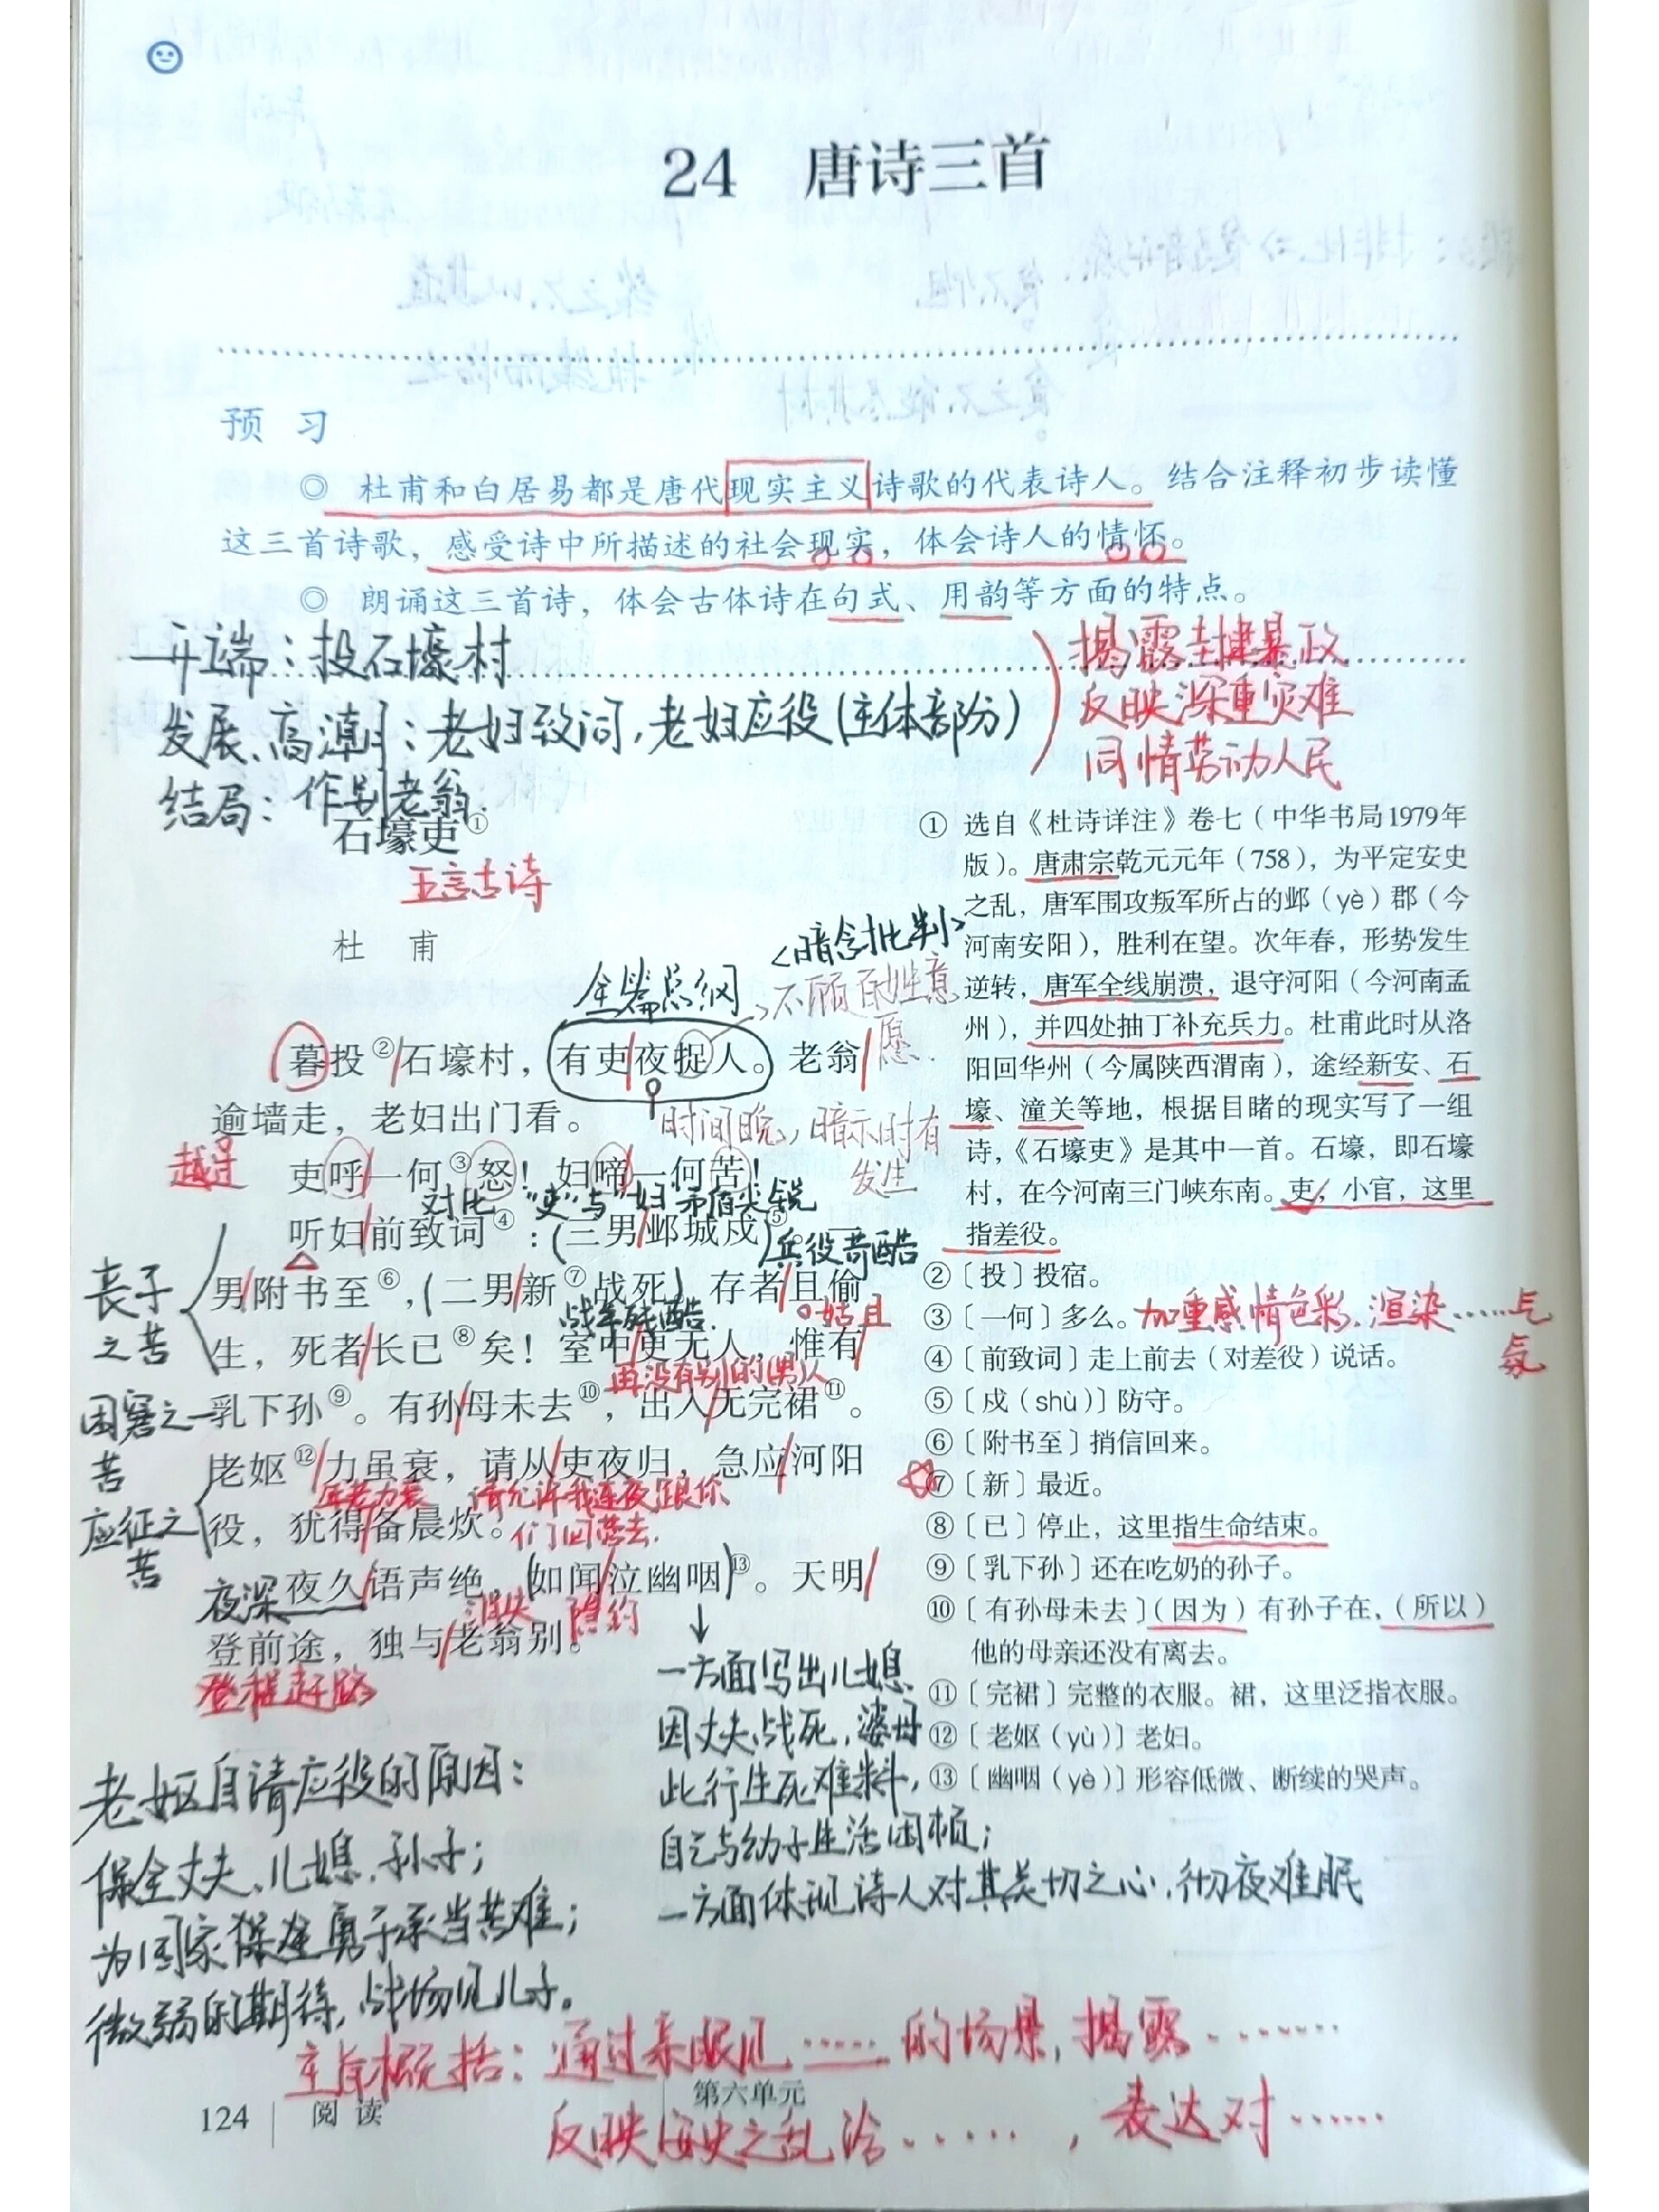 24 唐诗三首
预 习
◎ 杜甫和白居易都是唐代现实主义诗歌的代表诗人。结合注释初步读懂
这三首诗歌，感受诗中所描述的社会现实，体会诗人的情怀。
◎ 朗诵这三首诗，体会古体诗在句式、用韵等方面的特点。
开端：投石壕村
发展、高潮：老妇致词，老妇应役(主体部分)
结局：作别老翁.
揭露封建暴政
反映深重灾难
同情劳动人民
石壕吏①
五言古诗
杜 甫
全篇总纲
<暗含批判>
不顾百姓意
愿.
暮投②石壕村，有吏夜捉人。老翁
逾墙走，老妇出门看。
时间晚，暗示时有
发生
越过
吏呼一何③怒！妇啼一何苦！
对比 "吏"与"妇"矛盾尖锐
听妇前致词④：(三男邺城戍⑤)。一
兵役苛酷
男附书至⑥，(二男新⑦战死)。存者且偷
战争残酷.
姑且
生，死者长已⑧矣！室中更无人，惟有
再没有别的(男)人
乳下孙⑨。有孙母未去⑩，出入无完裙⑪。
老妪⑫力虽衰，请从吏夜归，急应河阳
年老力衰 请允许我连夜跟你
役，犹得备晨炊。
们回营去.
夜深
夜久语声绝，(如闻泣幽咽)⑬。天明
消失 隐约
登前途，独与老翁别。
登程赶路
丧子
之苦
困窘之
苦
应征之
苦
一方面写出儿媳
因丈夫战死，婆母
此行生死难料，
自己与幼子生活困顿；
一方面体现诗人对其关切之心，彻夜难眠
老妪自请应役的原因：
保全丈夫、儿媳、孙子；
为国家勇于承当苦难；
微弱的期待，战场见儿子。
① 选自《杜诗详注》卷七（中华书局1979年
版）。唐肃宗乾元元年（758），为平定安史
之乱，唐军围攻叛军所占的邺（yè）郡（今
河南安阳），胜利在望。次年春，形势发生
逆转，唐军全线崩溃，退守河阳（今河南孟
州），并四处抽丁补充兵力。杜甫此时从洛
阳回华州（今属陕西渭南），途经新安、石
壕、潼关等地，根据目睹的现实写了一组
诗，《石壕吏》是其中一首。石壕，即石壕
村，在今河南三门峡东南。吏，小官，这里
指差役。
②〔投〕投宿。
③〔一何〕多么。加重感情色彩、渲染……气
氛
④〔前致词〕走上前去（对差役）说话。
⑤〔戍（shù）〕防守。
⑥〔附书至〕捎信回来。
⑦〔新〕最近。
⑧〔已〕停止，这里指生命结束。
⑨〔乳下孙〕还在吃奶的孙子。
⑩〔有孙母未去〕（因为）有孙子在，（所以）
他的母亲还没有离去。
⑪〔完裙〕完整的衣服。裙，这里泛指衣服。
⑫〔老妪（yù）〕老妇。
⑬〔幽咽（yè）〕形容低微、断续的哭声。
主旨概括：通过亲眼见……的场景，揭露……
反映安史之乱给……，表达对……
124 阅 读
第六单元